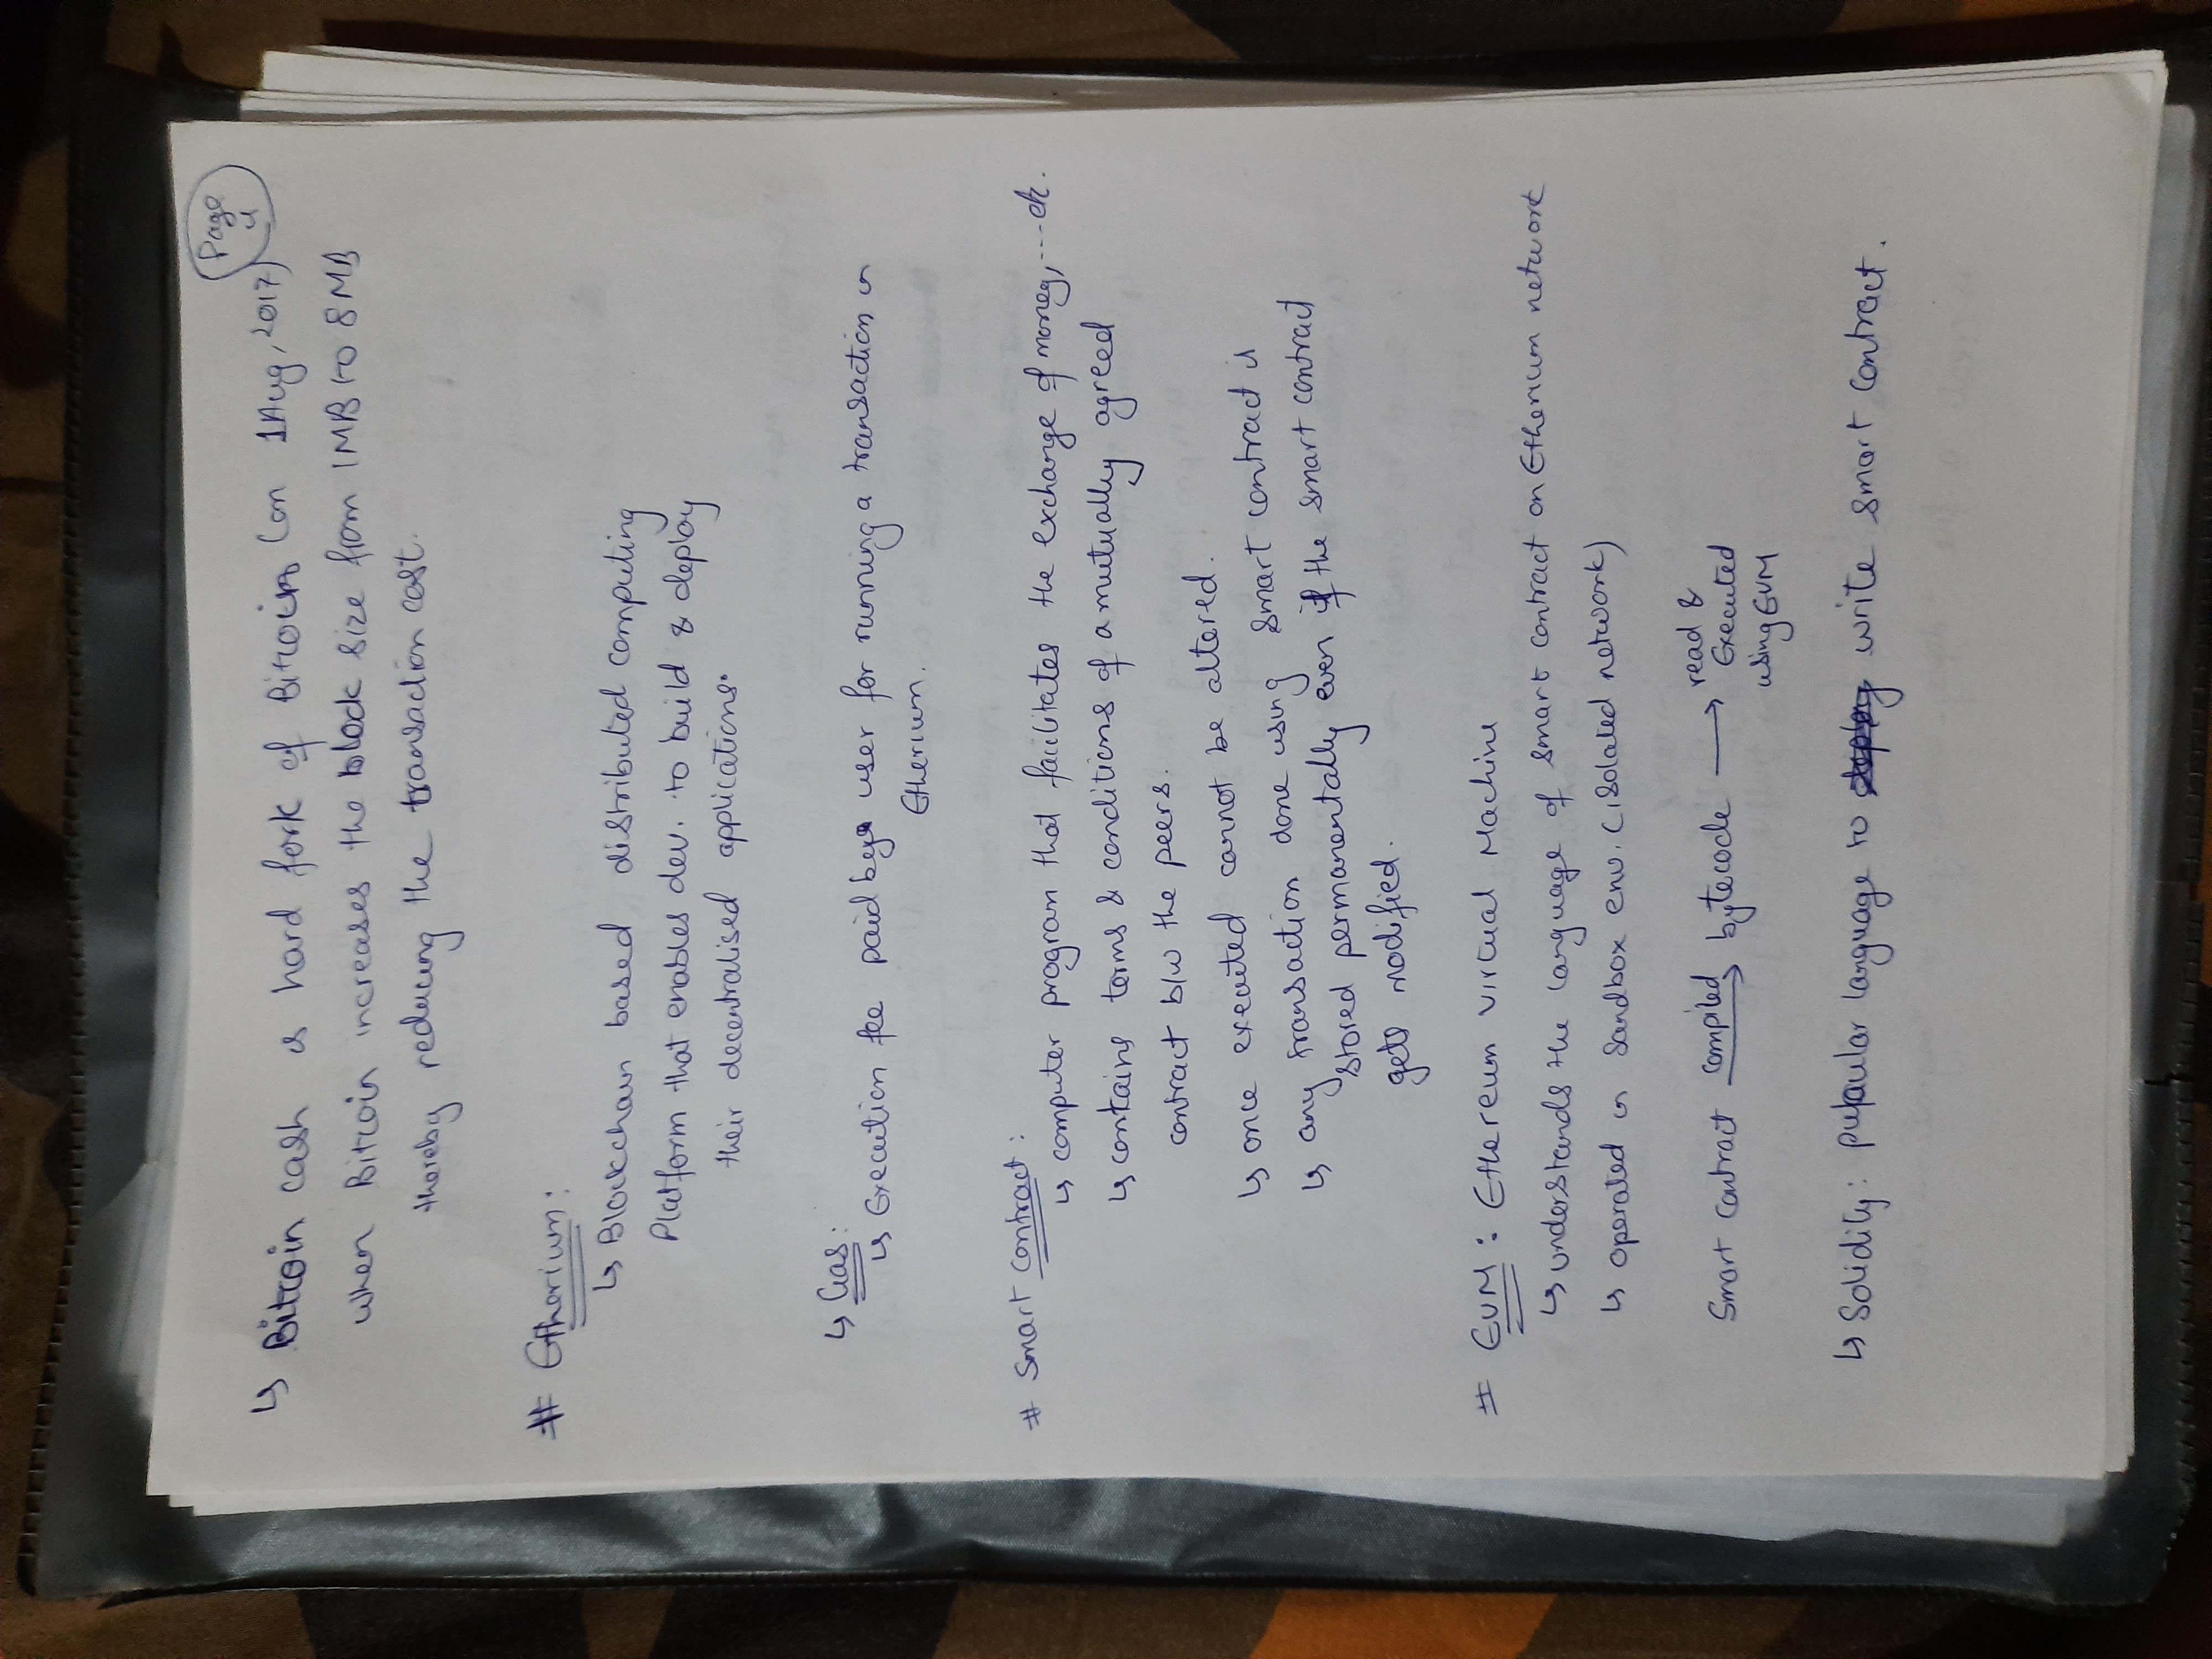 Page
4
↳ Bitcoin cash is hard fork of Bitcoin (on 1Aug, 2017)
when Bitcoin increases the block size from 1MB to 8MB
thereby reducing the transaction cost.
# Etherium:
↳ Blockchain based distributed computing
Platform that enables dev. to build & deploy
their decentralised applications.
↳ Gas:
↳ Execution fee paid by user for running a transaction in
Etherium.
# Smart contract:
↳ computer program that facilitates the exchange of money, --- etc.
↳ contains terms & conditions of a mutually agreed
contract b/w the peers.
↳ once executed cannot be altered.
↳ any transaction done using smart contract is
stored permanentally even if the smart contract
gets modified.
# EVM: Ethereum Virtual Machine
↳ understands the language of smart contract on Etherium network
↳ operated in Sandbox env. (isolated network)
Smart contract compiled → bytecode → read &
Executed
using EVM
↳ Solidity: pupaular language to write smart contract.